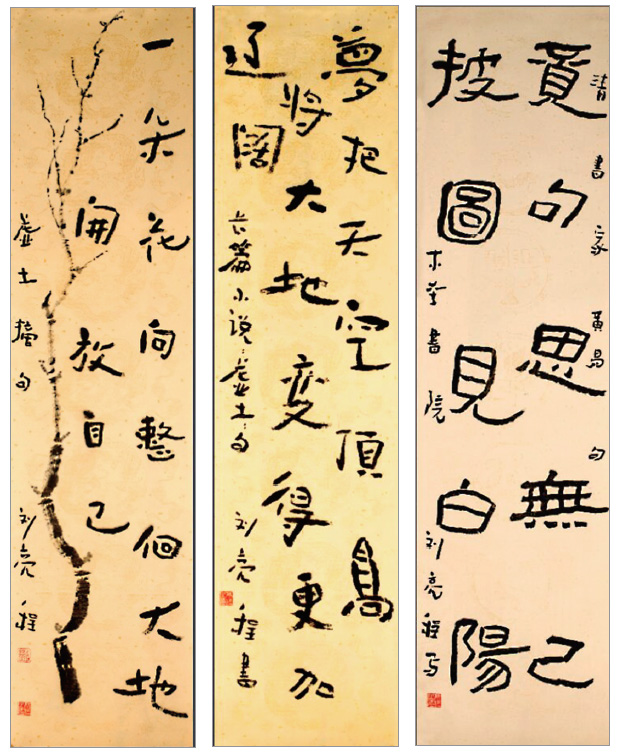 一朵花向整個大地
開放自己
虚土摘句 刘亮程
夢把天空頂高
將大地变得更加
辽闊
长篇小说:虚土:句 刘亮程書
清書家黄易句
覓句思無己
披圖見白陽
木垒書院 刘亮程写